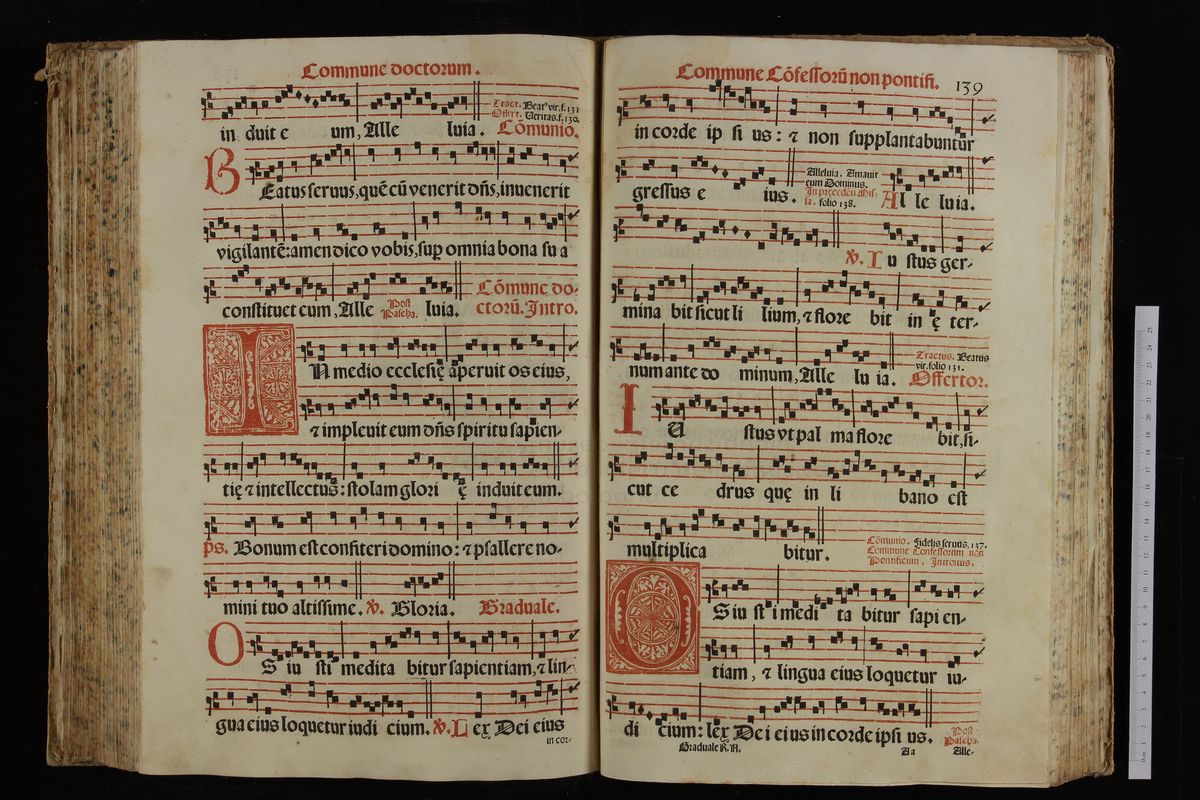 Commune doctorum.
in duit e um, Alle luia. Tract. Beatꝰ vir. f. 131
Offert. Veritas. f. 130. Cõmunio.
BEatus seruus, quẽ cũ venerit dñs, inuenerit
vigilantẽ: amen dico vobis, sup omnia bona su a
constituet eum, Alle Post Pascha. luia. Cõmune do-
ctorũ. Intro.
IN medio ecclesię aperuit os eius,
⁊ impleuit eum dñs spiritu sapien-
tię ⁊ intellectus: stolam glori ę induit eum.
ps. Bonum est confiteri domino: ⁊ psallere no-
mini tuo altissime. ℣. Gloria. Graduale.
OS iu sti medita bitur sapientiam, ⁊ lin-
gua eius loquetur iudi cium. ℣. Lex Dei eius
in cor-
Commune Cõfessorũ non pontifi. 139
in corde ip si us: ⁊ non supplantabuntur
gressus e ius. Alleluia. Amauit
eum Dominus.
In precedẽti Mis-
sa. folio 138. Al le luia.
℣. Iu stus ger-
mina bit sicut li lium, ⁊ flore bit in ę ter-
num ante do minum, Alle lu ia. Tractus. Beatus
vir. folio 131. Offertor.
IU stus vt pal ma flore bit, si-
cut ce drus quę in li bano est
multiplica bitur. Cõmunio. Fidelis seruus. 137.
Commune Confessorum non
Pontificum. Introitus.
OS iu st i medi ta bitur sapi en-
tiam, ⁊ lingua eius loquetur iu-
di cium: lex Dei ei us in corde ipsi us. Post
Pascha.
Graduale R.A. Aa Alle-